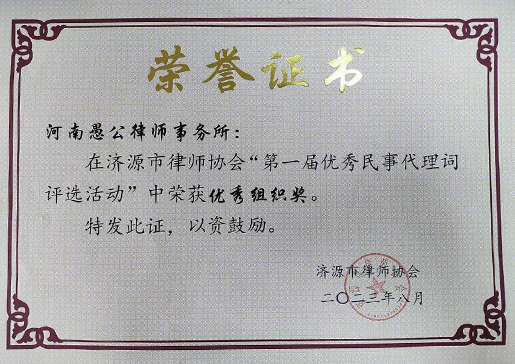 荣誉证书
河南愚公律师事务所：
在济源市律师协会“第一届优秀民事代理词
评选活动”中荣获优秀组织奖。
特发此证，以资鼓励。
济源市律师协会
二〇二三年八月